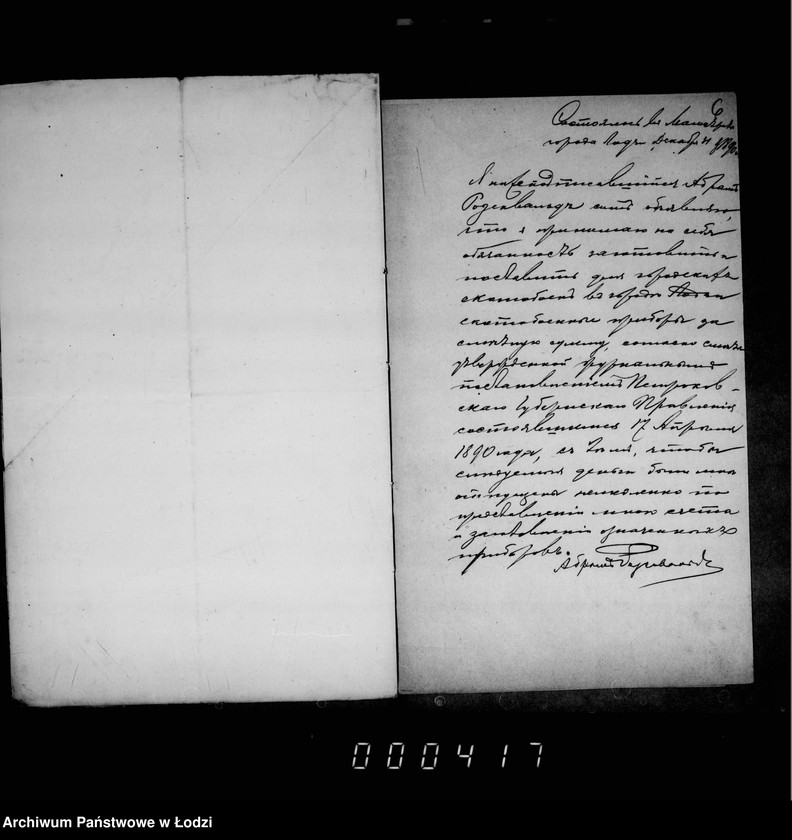 6
Состоялось въ Магистратѣ
города Лодзи Декабря 1890
Я нижеподписавшійся Абрамъ
Розенвальдъ симъ объявляю,
что я принимаю на себя
обязанность заготовить и
поставить для городскихъ
скотобоенъ въ городѣ Лодзи
скотобоенные приборы за
смѣтную сумму, согласно смѣтѣ
утвержденной журнальнымъ
постановленіемъ Петроков-
скаго Губернскаго Правленія
состоявшимся 17 Апрѣля
1890 года, съ тѣмъ, чтобы
слѣдуемыя деньги были мнѣ
отпущены немедленно по
представленіи мною счета
и заготовленіи означенныхъ
приборовъ.
Абрамъ Розенвальдъ
000417
Archiwum Państwowe w Łodzi